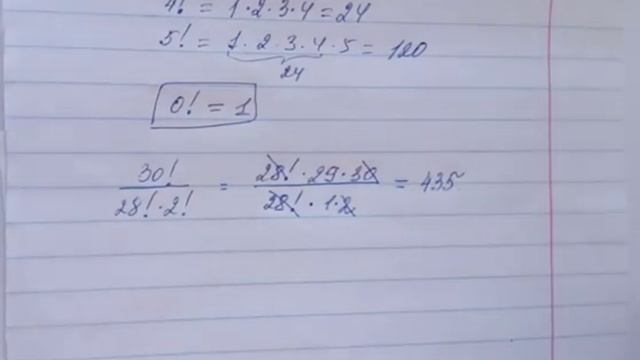 4! = 1·2·3·4 = 24
5! = 1·2·3·4·5 = 120
24
0! = 1
30! / 28!·2! = 28!·29·30 / 28!·1·2 = 435